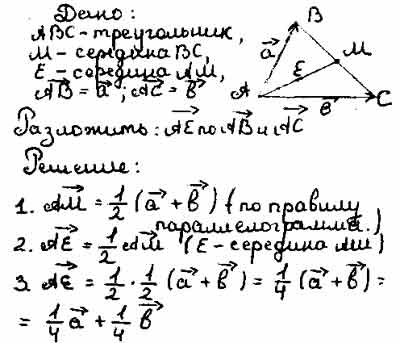 Дано:
ABC - треугольник,
M - середина BC,
E - середина AM,
AB→ = a→; AC→ = b→
B
a→
E
M
A
b→
C
Разложить: AE→ по AB→ и AC→
Решение:
1. AM→ = 1/2 (a→ + b→) (по правилу
параллелограмма.)
2. AE→ = 1/2 AM→ (E - середина AM)
3. AE→ = 1/2 · 1/2 (a→ + b→) = 1/4 (a→ + b→) =
= 1/4 a→ + 1/4 b→